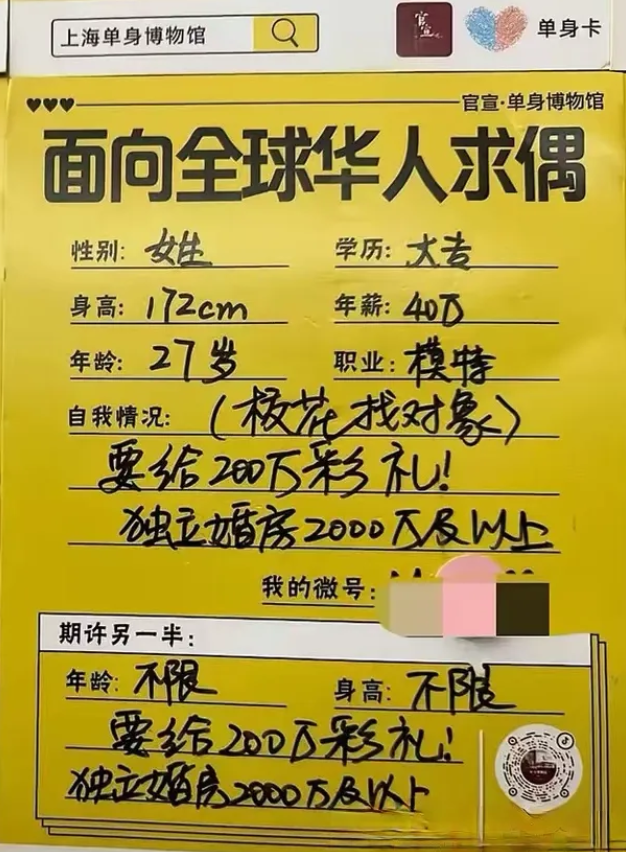 上海单身博物馆
官宣
单身卡
官宣·单身博物馆
面向全球华人求偶
性别: 女生 学历: 大专
身高: 172cm 年薪: 40万
年龄: 27岁 职业: 模特
自我情况: (校花找对象)
要给200万彩礼!
独立婚房2000万及以上
我的微号:
期许另一半:
年龄: 不限 身高: 不限
要给200万彩礼!
独立婚房2000万及以上